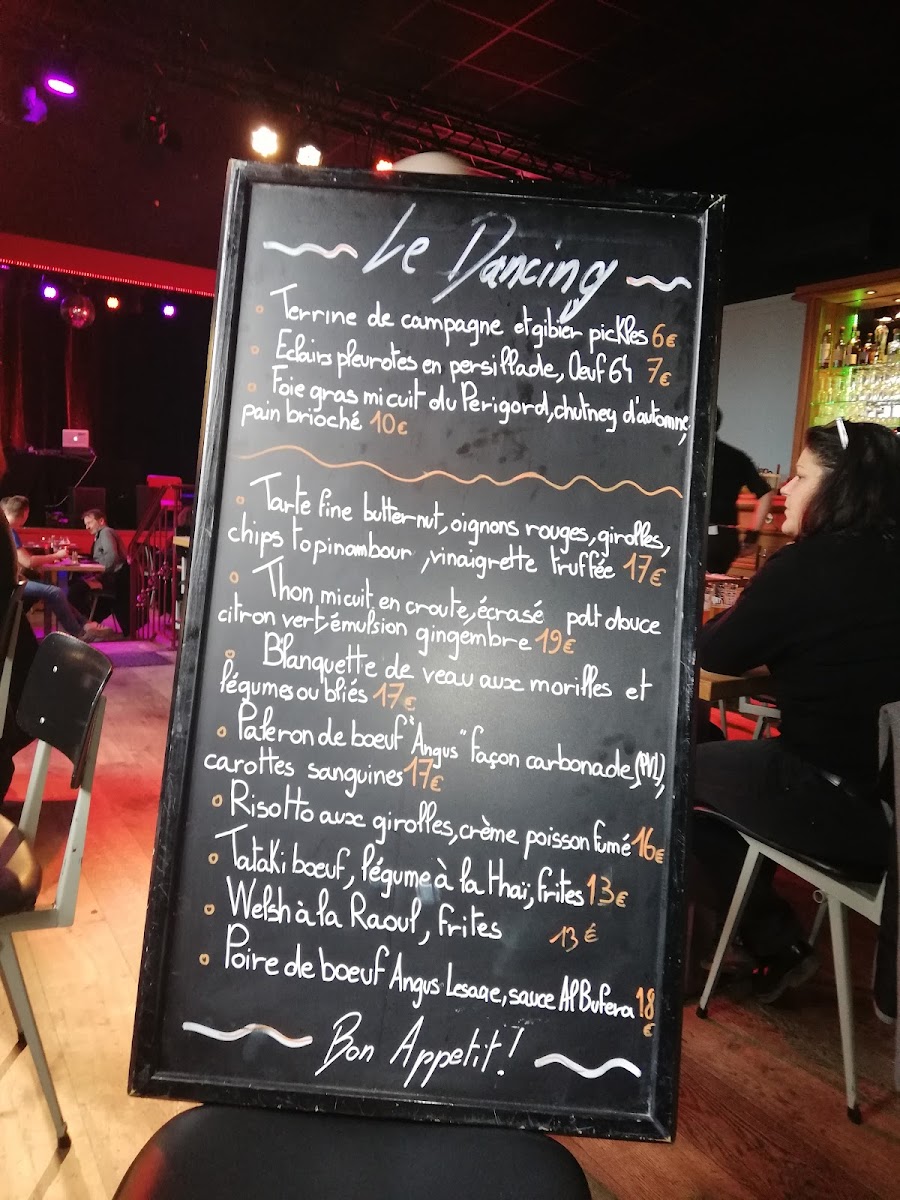 Le Dancing
Terrine de campagne et gibier pickles 6€
Eclairs pleurotes en persillade, Oeuf 64 7€
Foie gras mi cuit du Périgord, chutney d'automne,
pain brioché 10€
Tarte fine butternut, oignons rouges, girolles,
chips topinambour, vinaigrette truffée 17€
Thon mi cuit en croute, écrasé patt douce
citron vert, émulsion gingembre 19€
Blanquette de veau aux morilles et
légumes oubliés 17€
Paleron de boeuf "Angus" façon carbonade,
carottes sanguines 17€
Risotto aux girolles, crème poisson fumé 16€
Tataki boeuf, légume à la thaï, frites 13€
Welsh à la Raoul, frites 13€
Poire de boeuf Angus Lesage, sauce AlBufera 18
€
Bon Appetit!